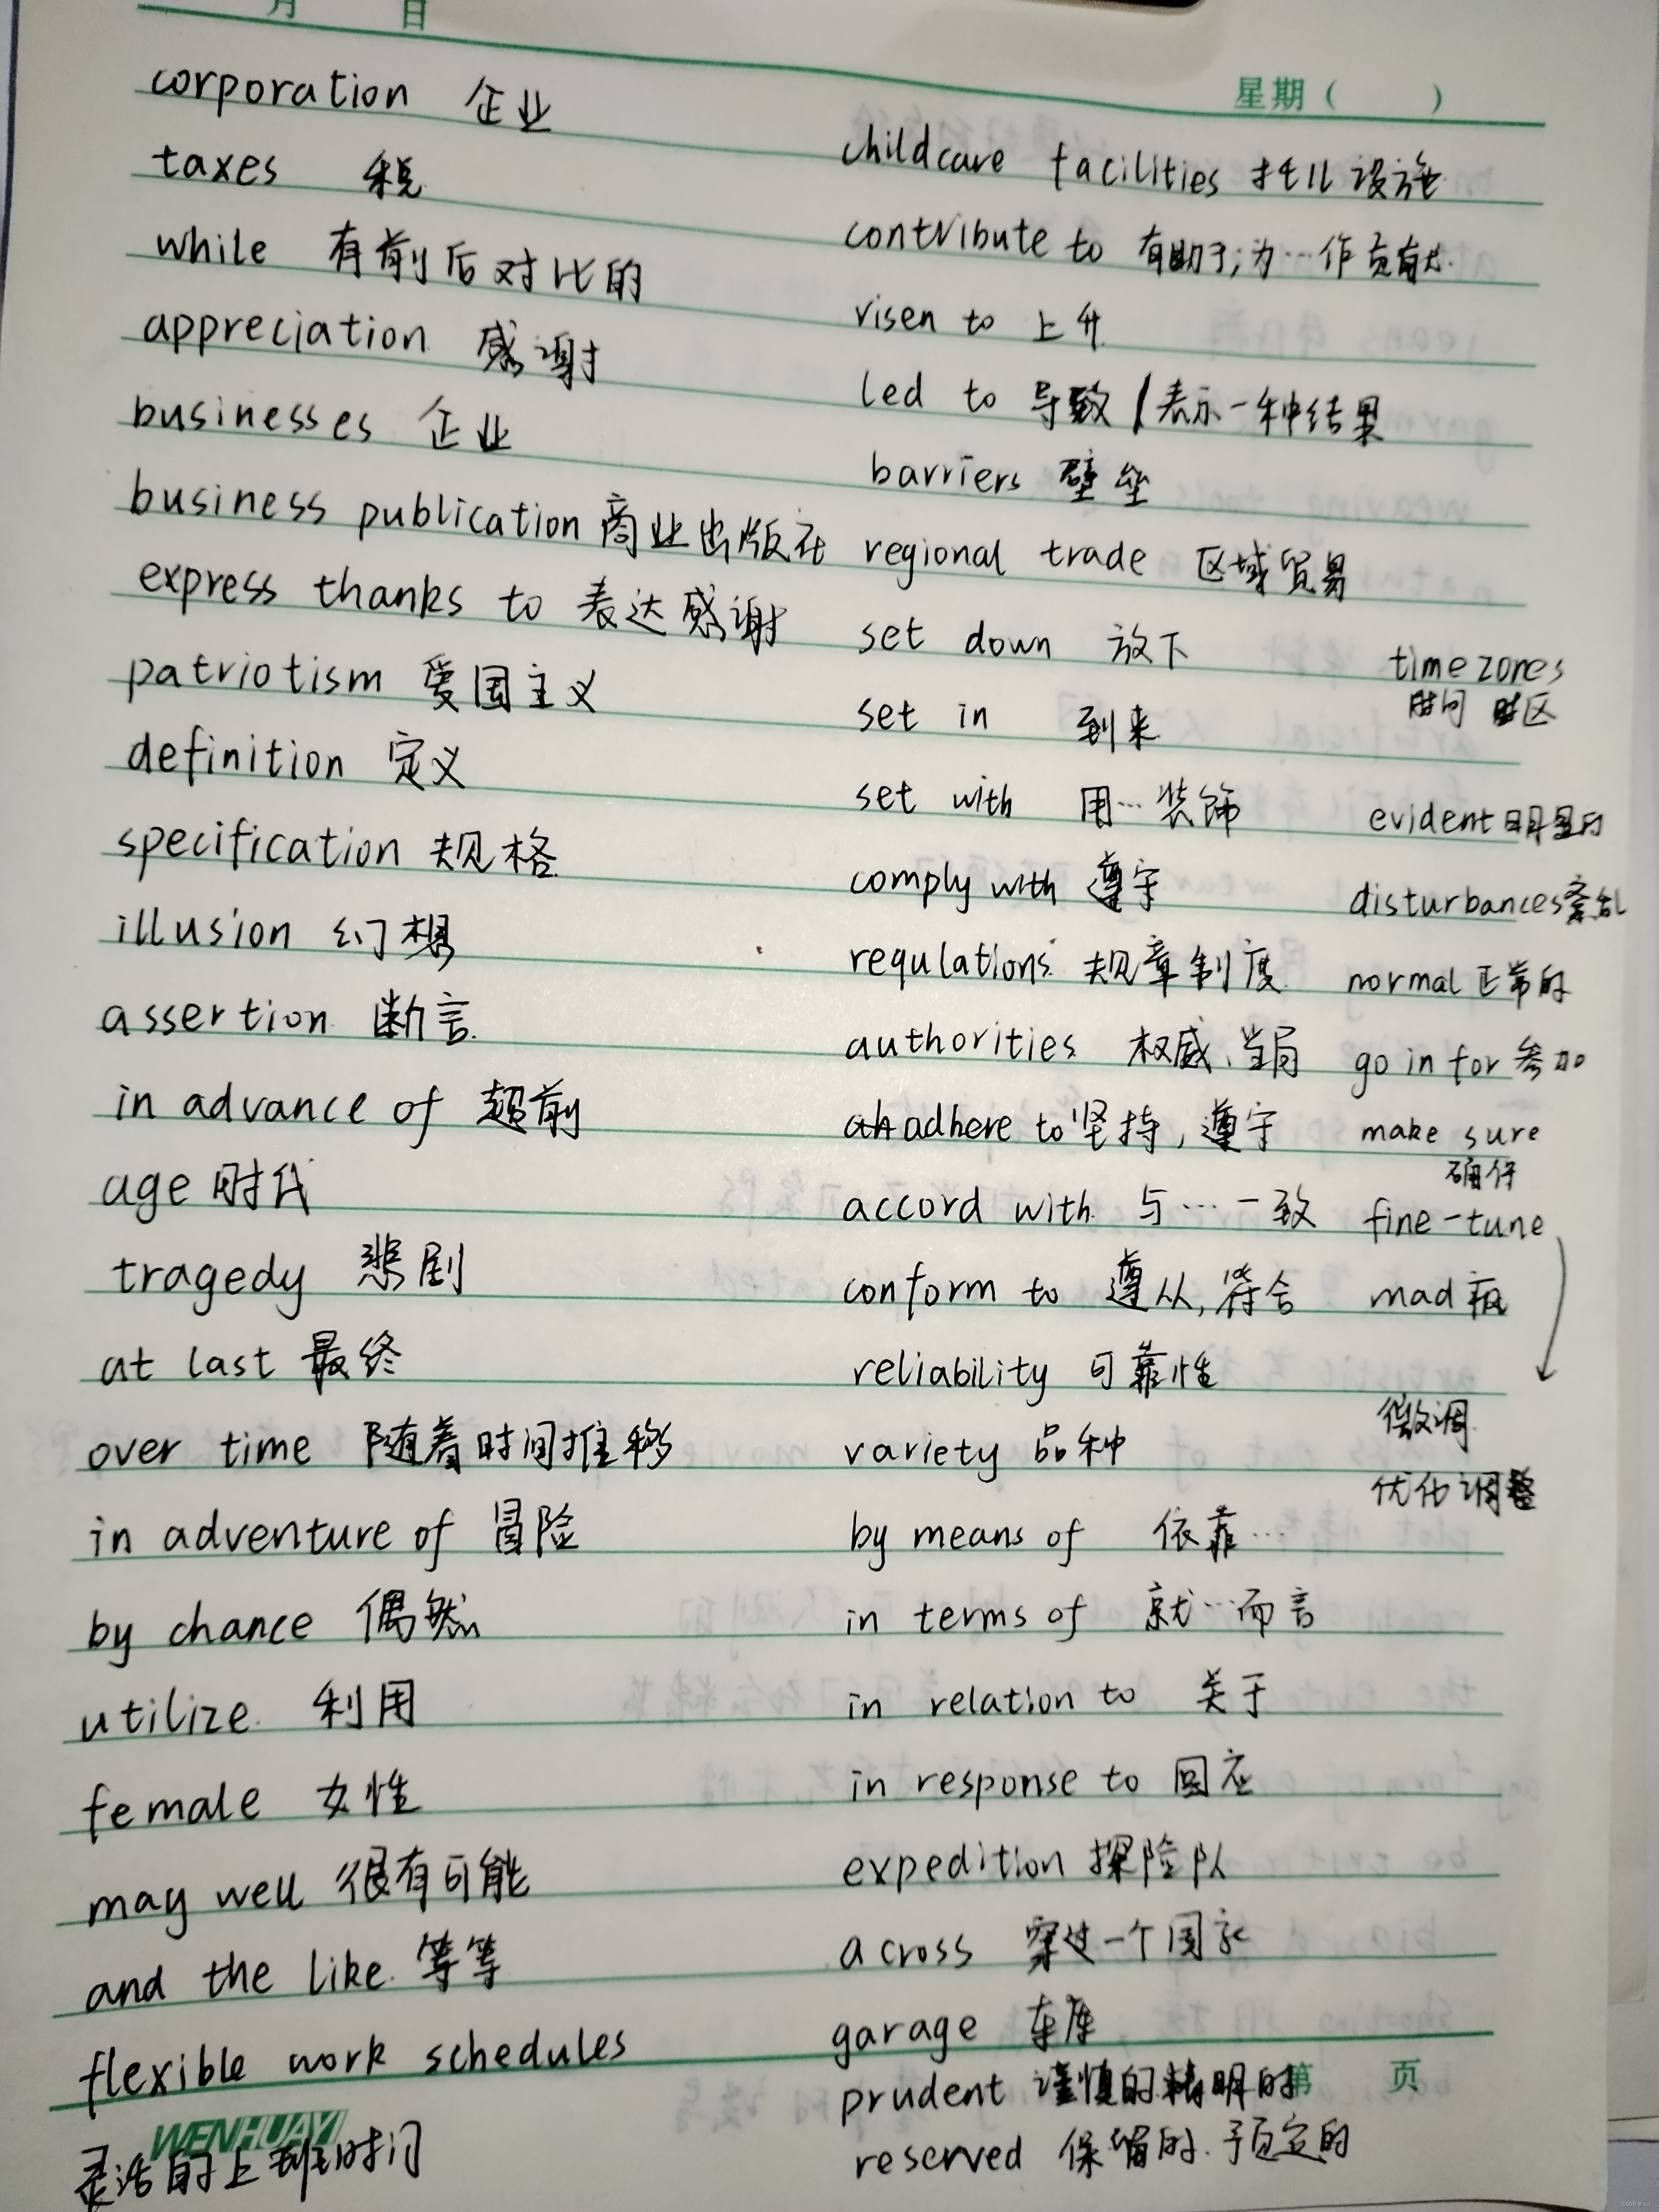 月 日
星期（ ）
corporation 企业
taxes 税
while 有前后对比的
appreciation 感谢
businesses 企业
business publication 商业出版社
express thanks to 表达感谢
patriotism 爱国主义
definition 定义
specification 规格
illusion 幻想
assertion 断言
in advance of 超前
age 时代
tragedy 悲剧
at last 最终
over time 随着时间推移
in adventure of 冒险
by chance 偶然
utilize 利用
female 女性
may well 很有可能
and the like 等等
flexible work schedules
灵活的上班时间
WENHUAYI
childcare facilities 托儿设施
contribute to 有助于;为…作贡献
risen to 上升
led to 导致/表示一种结果
barriers 壁垒
regional trade 区域贸易
set down 放下
set in 到来
set with 用…装饰
comply with 遵守
regulations 规章制度
authorities 权威、当局
adhere to 坚持,遵守
accord with 与…一致
conform to 遵从,符合
reliability 可靠性
variety 品种
by means of 依靠…
in terms of 就…而言
in relation to 关于
in response to 回应
expedition 探险队
across 穿过一个国家
garage 车库
prudent 谨慎的精明的
reserved 保留的.预定的
第 页
time zones
时间 时区
evident 明显的
disturbances 紊乱
normal 正常的
go in for 参加
make sure
确保
fine-tune
mad 疯
微调
优化调整